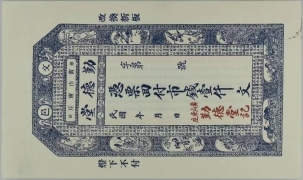 改換新版
勤德堂
字第 號
憑票即付市錢壹仟文
民國 年 月 日
勤德堂記
燈下不付